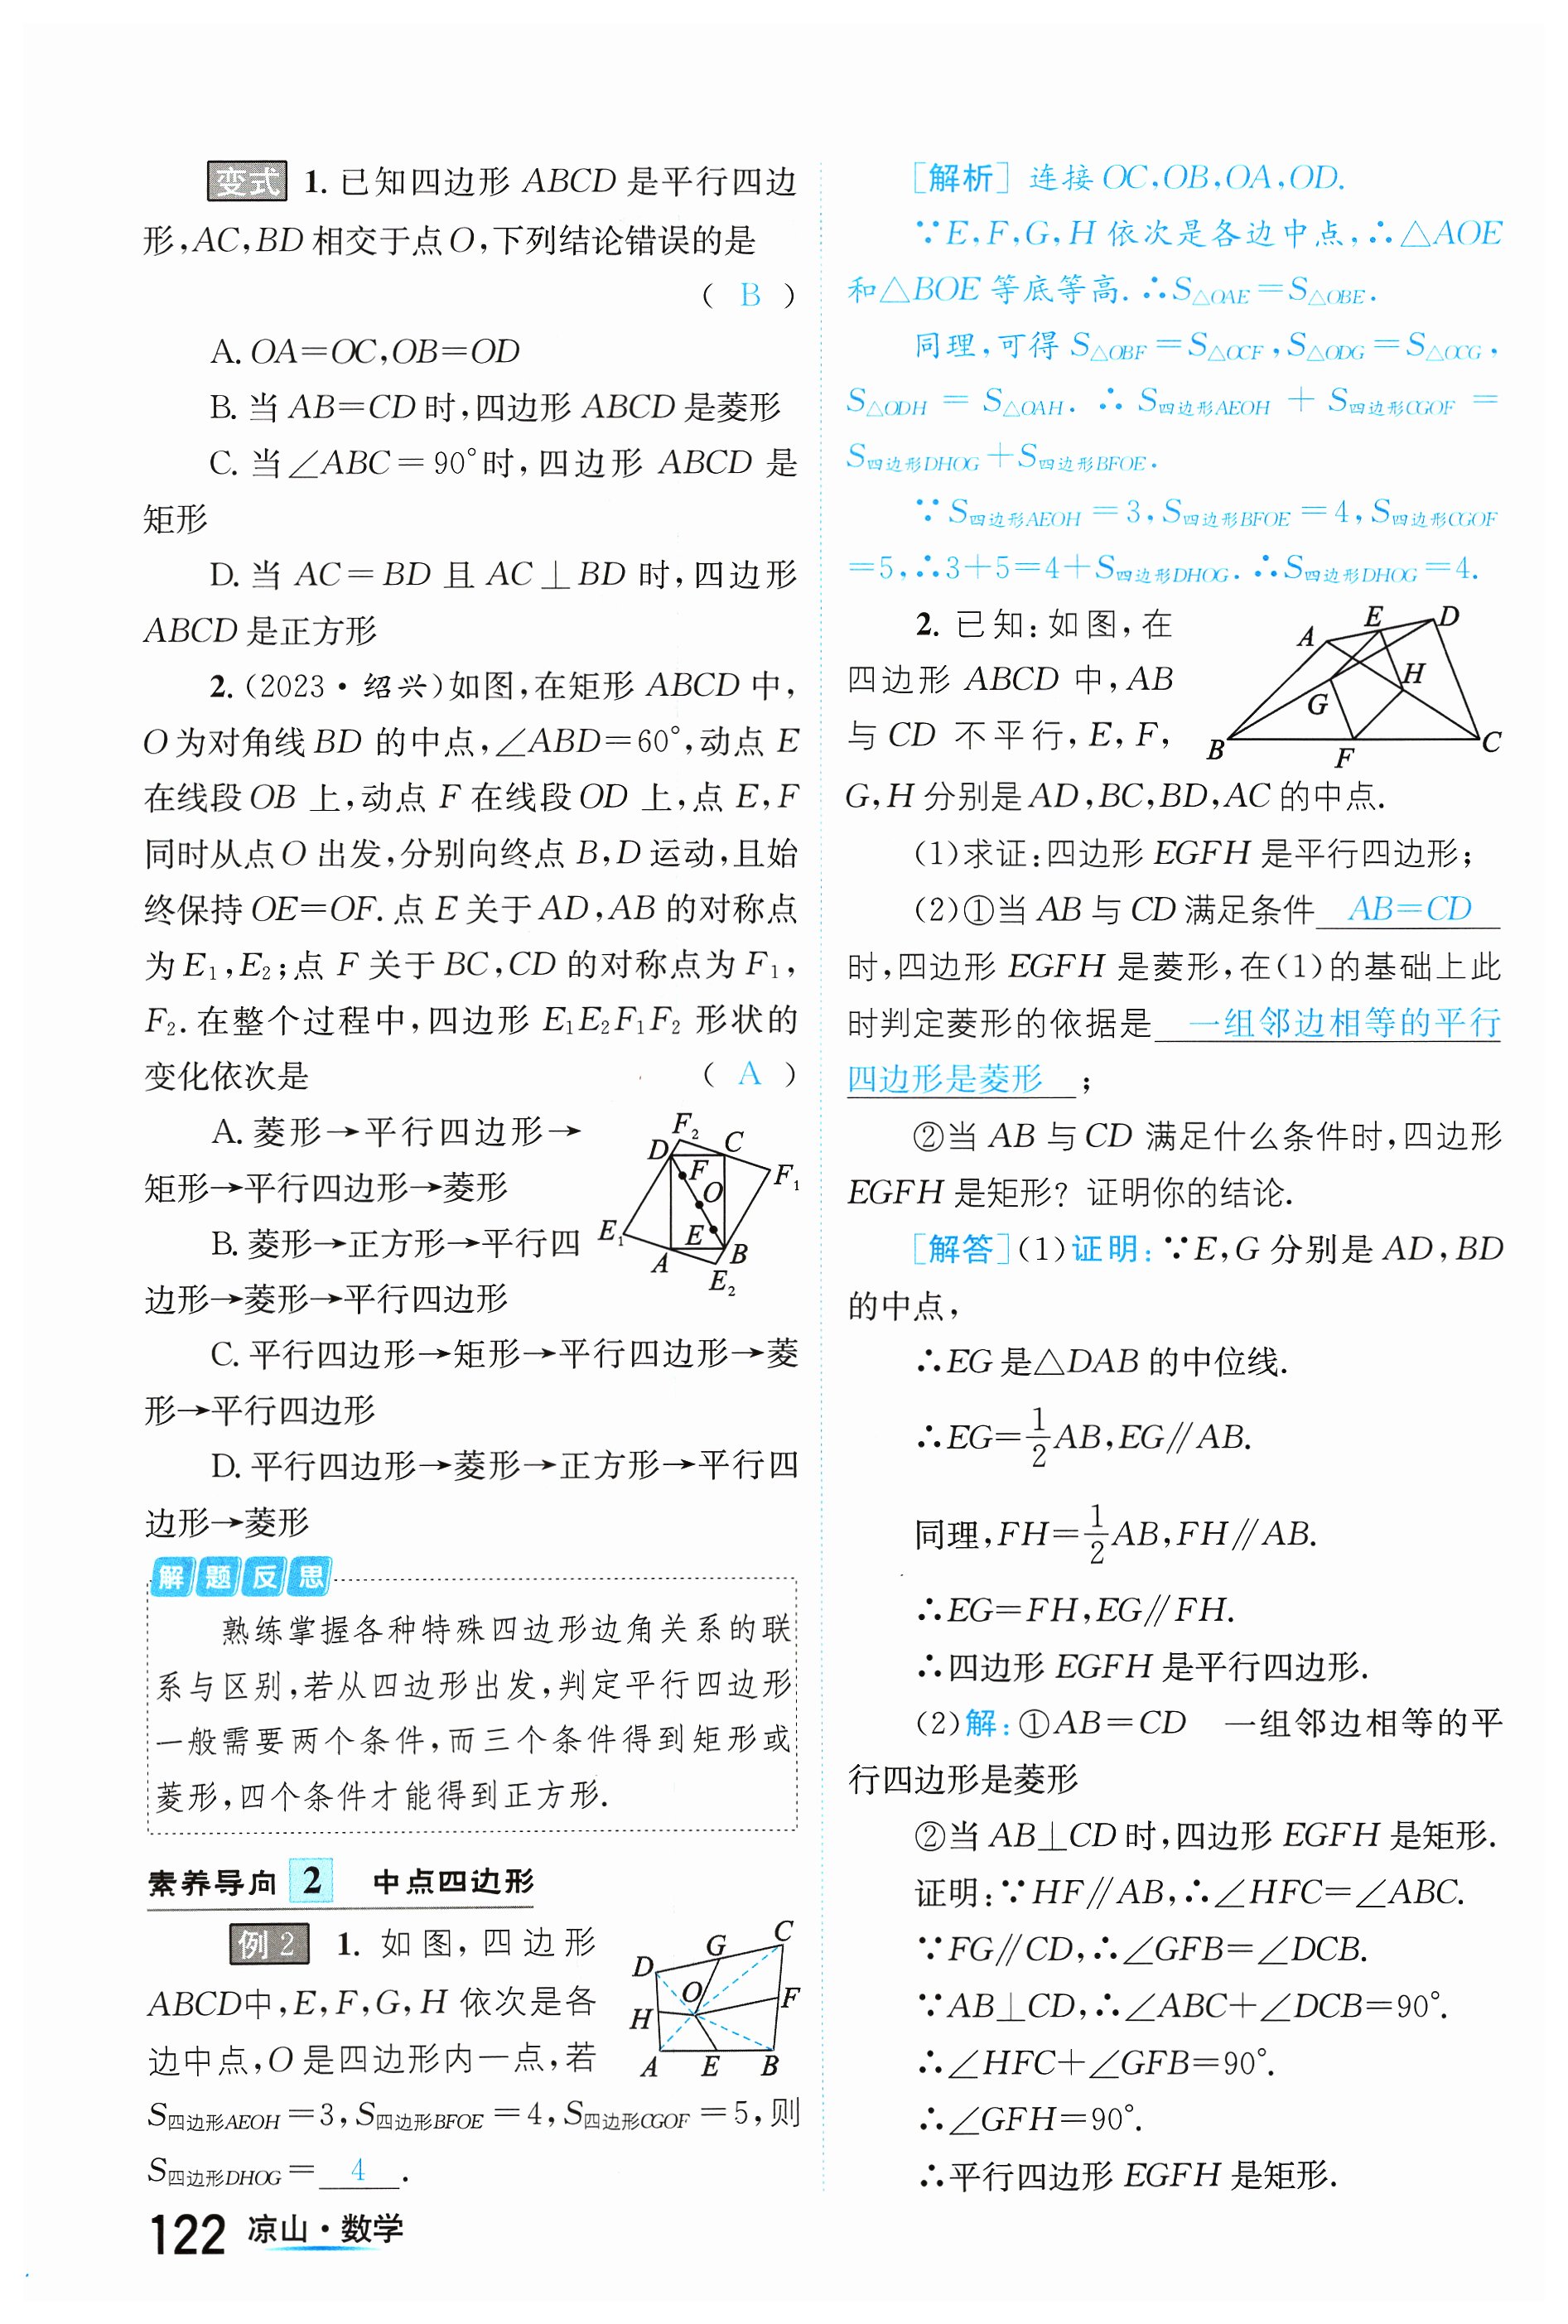 变式 1. 已知四边形 ABCD 是平行四边
形,AC,BD 相交于点 O,下列结论错误的是
( B )
A. OA=OC,OB=OD
B. 当 AB=CD 时,四边形 ABCD 是菱形
C. 当∠ABC=90°时,四边形 ABCD 是
矩形
D. 当 AC=BD 且 AC⊥BD 时,四边形
ABCD 是正方形
2. (2023·绍兴)如图,在矩形 ABCD 中,
O 为对角线 BD 的中点,∠ABD=60°,动点 E
在线段 OB 上,动点 F 在线段 OD 上,点 E,F
同时从点 O 出发,分别向终点 B,D 运动,且始
终保持 OE=OF. 点 E 关于 AD,AB 的对称点
为 E₁,E₂;点 F 关于 BC,CD 的对称点为 F₁,
F₂. 在整个过程中,四边形 E₁E₂F₁F₂ 形状的
变化依次是 ( A )
A. 菱形→平行四边形→
矩形→平行四边形→菱形
B. 菱形→正方形→平行四
边形→菱形→平行四边形
F₂ D C F F₁ O E₁ E A B E₂
C. 平行四边形→矩形→平行四边形→菱
形→平行四边形
D. 平行四边形→菱形→正方形→平行四
边形→菱形
解题反思
熟练掌握各种特殊四边形边角关系的联
系与区别,若从四边形出发,判定平行四边形
一般需要两个条件,而三个条件得到矩形或
菱形,四个条件才能得到正方形.
素养导向 2 中点四边形
例 2 1. 如图,四边形
ABCD中,E,F,G,H 依次是各
边中点,O 是四边形内一点,若
D G C O F H A E B
S四边形AEOH=3,S四边形BFOE=4,S四边形CGOF=5,则
S四边形DHOG= 4 .
122 凉山·数学
[解析] 连接 OC,OB,OA,OD.
∵E,F,G,H 依次是各边中点,∴△AOE
和△BOE 等底等高. ∴S△OAE=S△OBE.
同理,可得 S△OBF=S△OCF,S△ODG=S△OCG,
S△ODH=S△OAH. ∴S四边形AEOH+S四边形CGOF=
S四边形DHOG+S四边形BFOE.
∵S四边形AEOH=3,S四边形BFOE=4,S四边形CGOF
=5,∴3+5=4+S四边形DHOG. ∴S四边形DHOG=4.
2. 已知:如图,在
四边形 ABCD 中,AB
与 CD 不平行,E,F,
A E D H G B F C
G,H 分别是 AD,BC,BD,AC 的中点.
(1)求证:四边形 EGFH 是平行四边形;
(2)①当 AB 与 CD 满足条件 AB=CD
时,四边形 EGFH 是菱形,在(1)的基础上此
时判定菱形的依据是 一组邻边相等的平行
四边形是菱形 ;
②当 AB 与 CD 满足什么条件时,四边形
EGFH 是矩形? 证明你的结论.
[解答](1)证明:∵E,G 分别是 AD,BD
的中点,
∴EG 是△DAB 的中位线.
∴EG=1/2AB,EG∥AB.
同理,FH=1/2AB,FH∥AB.
∴EG=FH,EG∥FH.
∴四边形 EGFH 是平行四边形.
(2)解:①AB=CD 一组邻边相等的平
行四边形是菱形
②当 AB⊥CD 时,四边形 EGFH 是矩形.
证明:∵HF∥AB,∴∠HFC=∠ABC.
∵FG∥CD,∴∠GFB=∠DCB.
∵AB⊥CD,∴∠ABC+∠DCB=90°.
∴∠HFC+∠GFB=90°.
∴∠GFH=90°.
∴平行四边形 EGFH 是矩形.